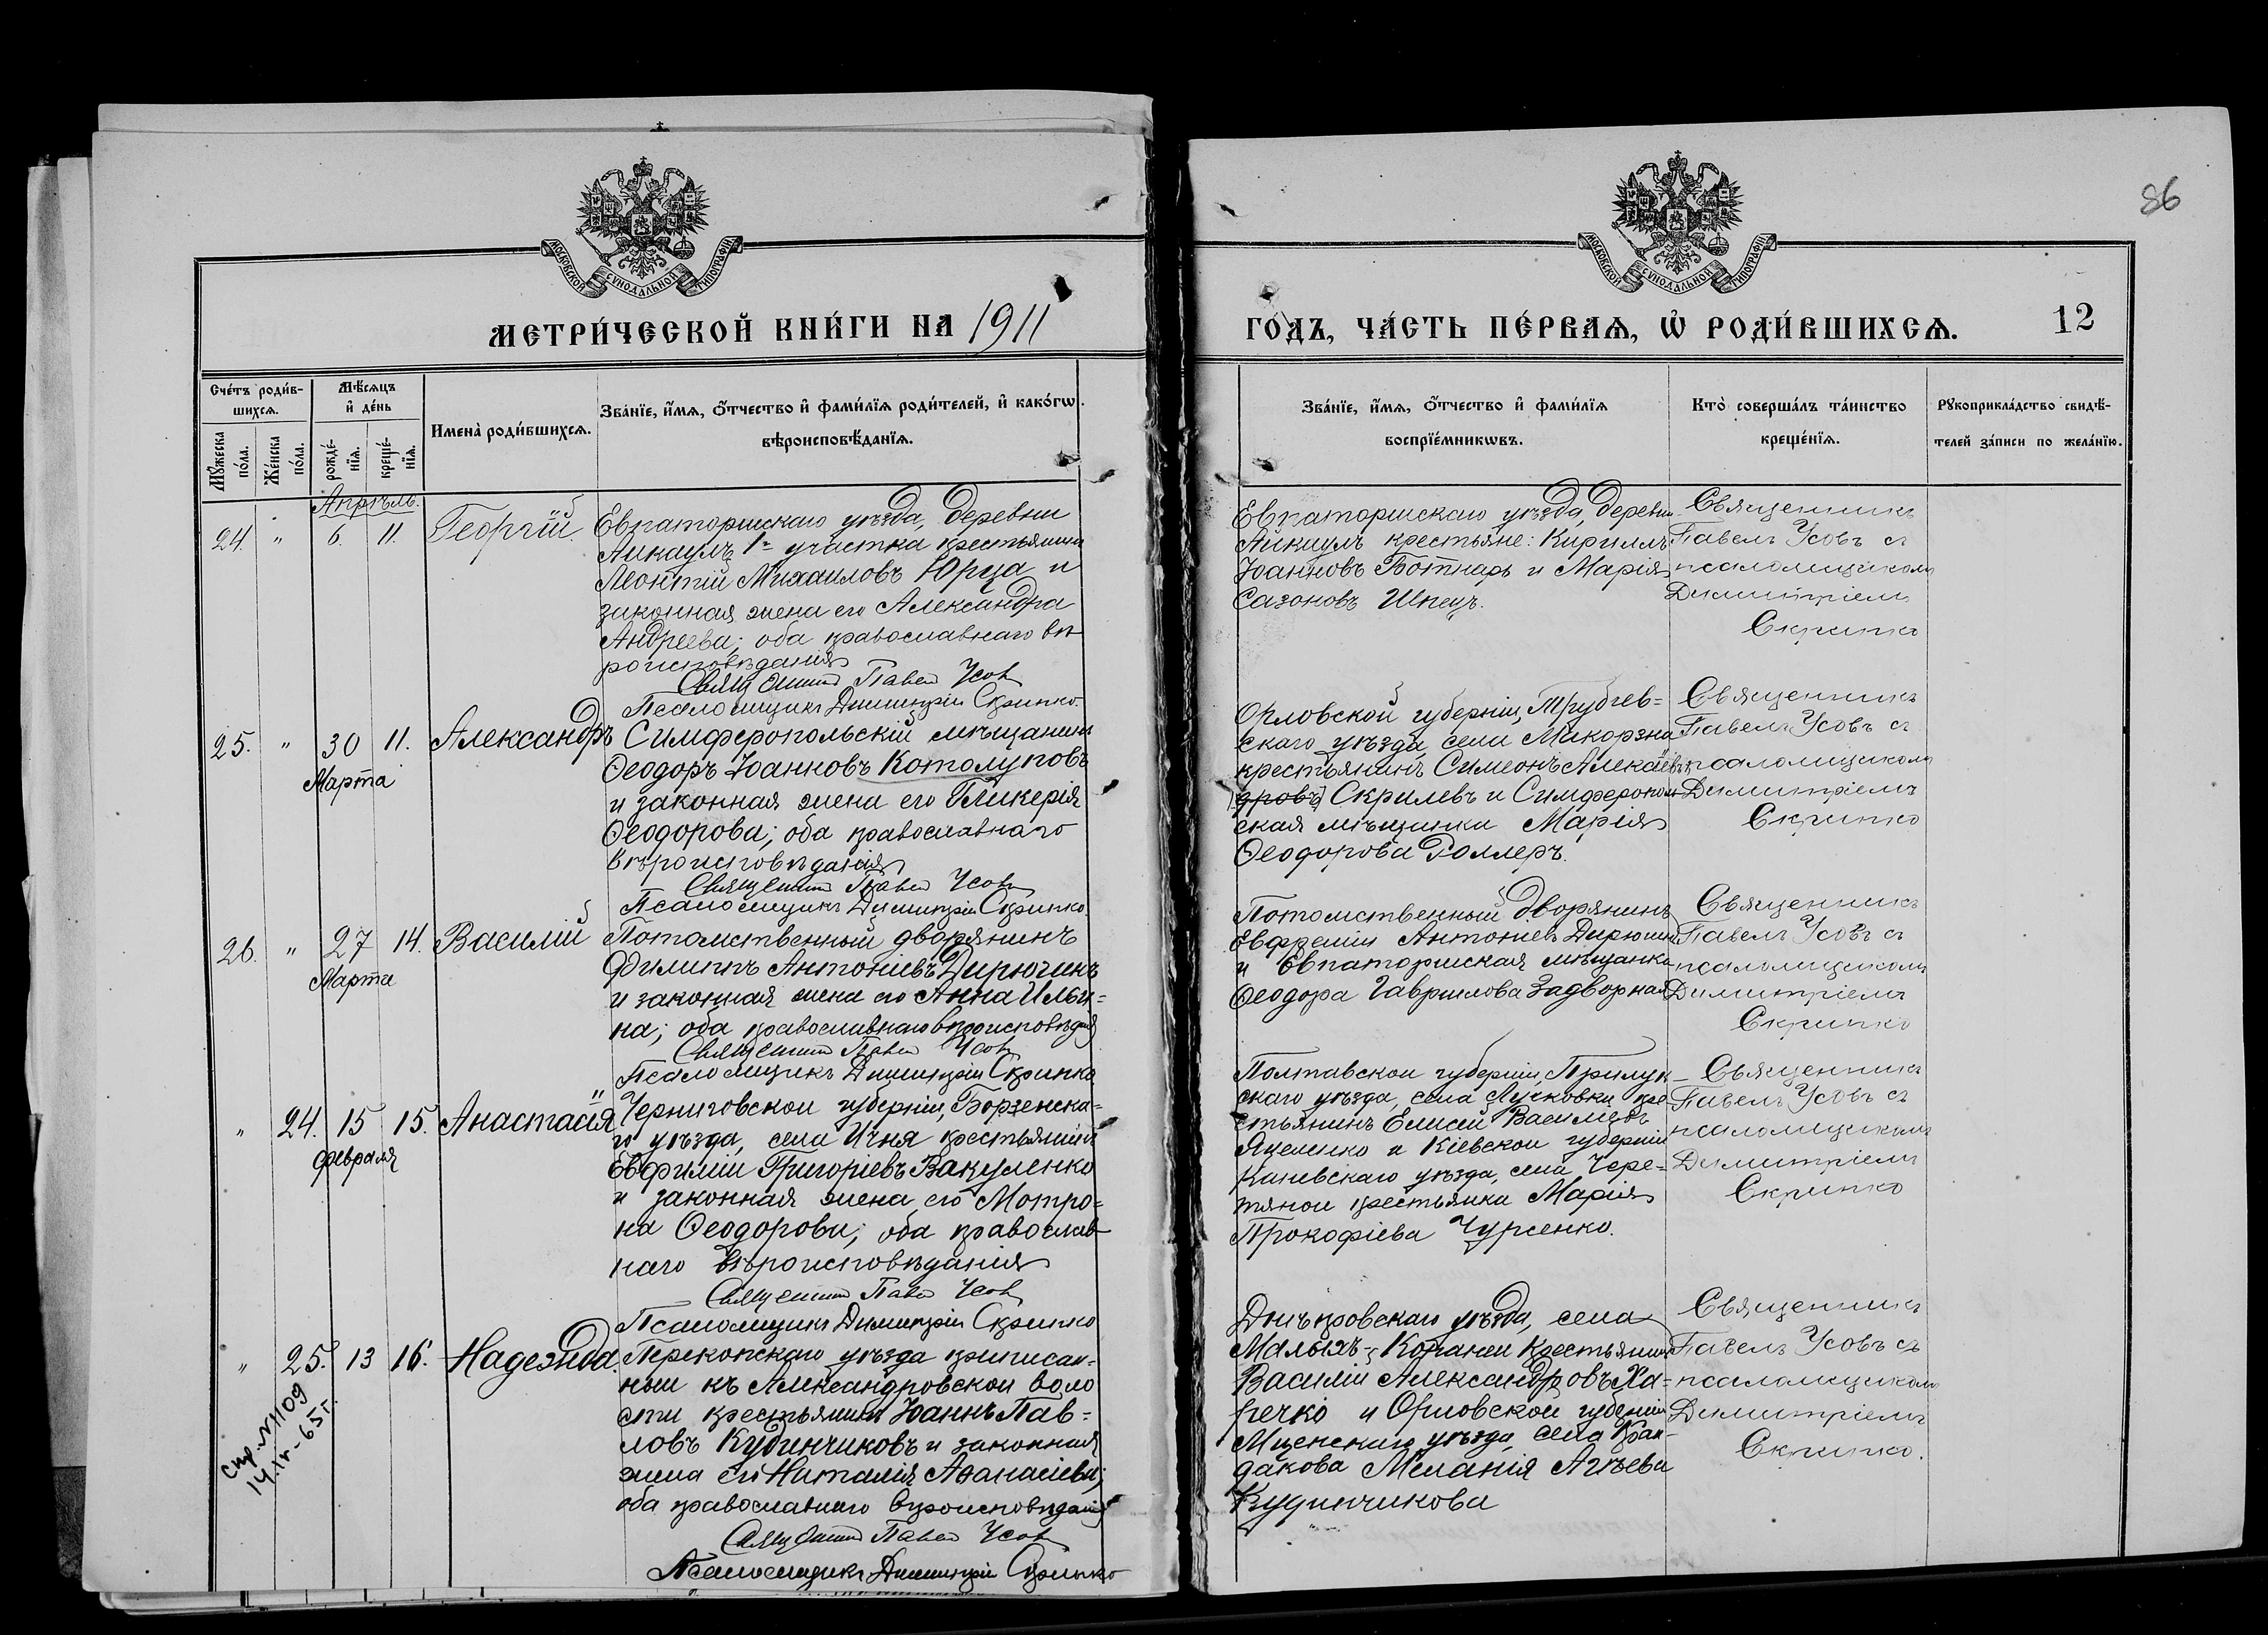 86
МОСКОВСКОЙ СУНОДАЛЬНОЙ ТИПОГРАФІИ
МЕТРИ́ЧЕСКОЙ КНИ́ГИ НА 1911
Счéтъ роди́в-
шихсѧ.
Мѣ́сѧцъ
и҆ дéнь
Мꙋ́жеска
по́ла.
Жéнска
по́ла.
рождé-
нїѧ.
крещé-
нїѧ.
Именà роди́вшихсѧ.
Звáнїе, и҆́мѧ, ѻ҆́тчество и҆ фами́лїѧ роди́телей, и҆ какóгѡ
вѣроисповѣ́данїѧ.
Апрѣль.
24. " 6. 11. Георгій.
Евпаторійскаго уѣзда, деревни
Айкаулъ 1го участка крестьянинъ
Леонтій Михаиловъ Юрца и
законная жена его Александра
Андреева; оба православнаго вѣ-
роисповѣданія
Священникъ Павелъ Усовъ
Псаломщикъ Димитрій Скрипко.
25. " 30 11. Александръ
Марта
Симферопольскій мѣщанинъ
Ѳеодоръ Іоанновъ Котолуповъ
и законная жена его Гликерія
Ѳеодорова; оба православнаго
вѣроисповѣданія
Священникъ Павелъ Усовъ
Псаломщикъ Димитрій Скрипко.
26. " 27 14. Василій
Марта
Потомственный дворянинъ
Филиппъ Антоніевъ Дирючинъ
и законная жена его Анна Ильи-
на; оба православнаго вѣроисповѣданія
Священникъ Павелъ Усовъ
Псаломщикъ Димитрій Скрипко
" 24. 15 15. Анастасія
Февраля
Черниговской губерніи, Борзенска-
го уѣзда, села Ичня крестьянинъ
Евфимій Григоріевъ Вакуленко
и законная жена его Мотро-
на Ѳеодорова; оба православ-
наго вѣроисповѣданія
Священникъ Павелъ Усовъ
Псаломщикъ Димитрій Скрипко
" 25. 13 16. Надежда.
Спр. N 1109
Перекопскаго уѣзда приписан-
ный къ Александровской воло
сти крестьянинъ Іоаннъ Пав-
ловъ Кудинчиковъ и законная
жена его Наталія Аѳанасіева;
оба православнаго вѣроисповѣданія
Священникъ Павелъ Усовъ
Псаломщикъ Димитрій Скрипко
МОСКОВСКОЙ СУНОДАЛЬНОЙ ТИПОГРАФІИ
ГО́ДЪ, ЧА́СТЬ ПЕ́РВАѦ, Ѡ҆ РОДИ́ВШИХСѦ. 12
Звáнїе, и҆́мѧ, ѻ҆́тчество и҆ фами́лїѧ
воспрїéмникѡвъ.
Ктò совершáлъ тáинство
крещéнїѧ.
Рꙋкоприклáдство свидѣ́-
телей зáписи по желáнїю.
Евпаторійскаго уѣзда, деревни
Айкаулъ крестьяне: Кириллъ
Іоанновъ Ботнарь и Марія
Сазоновъ Шпецъ.
Священникъ
Павелъ Усовъ съ
псаломщикомъ
Димитріемъ
Скрипко
Орловской губерніи, Трубчев-
скаго уѣзда, села
крестьянинъ Симеонъ
Скрилевъ и Симферополь-
ская мѣщанка Марія
Ѳеодорова Роллеръ.
Священникъ
Павелъ Усовъ съ
псаломщикомъ
Димитріемъ
Скрипко
Потомственный дворянинъ
Евфремій Антоніевъ Дирючинъ
и Евпаторійская мѣщанка
Ѳеодора Гавриилова Задворная
Священникъ
Павелъ Усовъ съ
псаломщикомъ
Димитріемъ
Скрипко
Полтавской губерніи, Прилук-
скаго уѣзда, села Лучковки кре-
стьянинъ Елисей Василіевъ
Яценко и Кіевской губерніи
Каневскаго уѣзда, села Чере-
крестьянка Марія
Прокофіева Чурсенко.
Священникъ
Павелъ Усовъ съ
псаломщикомъ
Димитріемъ
Скрипко
Днѣпровскаго уѣзда, села
Малыхъ-Копаней крестьянинъ
Василій Александровъ Ха-
речко и Орловской губерніи
Мценскаго уѣзда, села Кран-
дакова Меланія Агѣева
Кудинчикова
Священникъ
Павелъ Усовъ съ
псаломщикомъ
Димитріемъ
Скрипко.